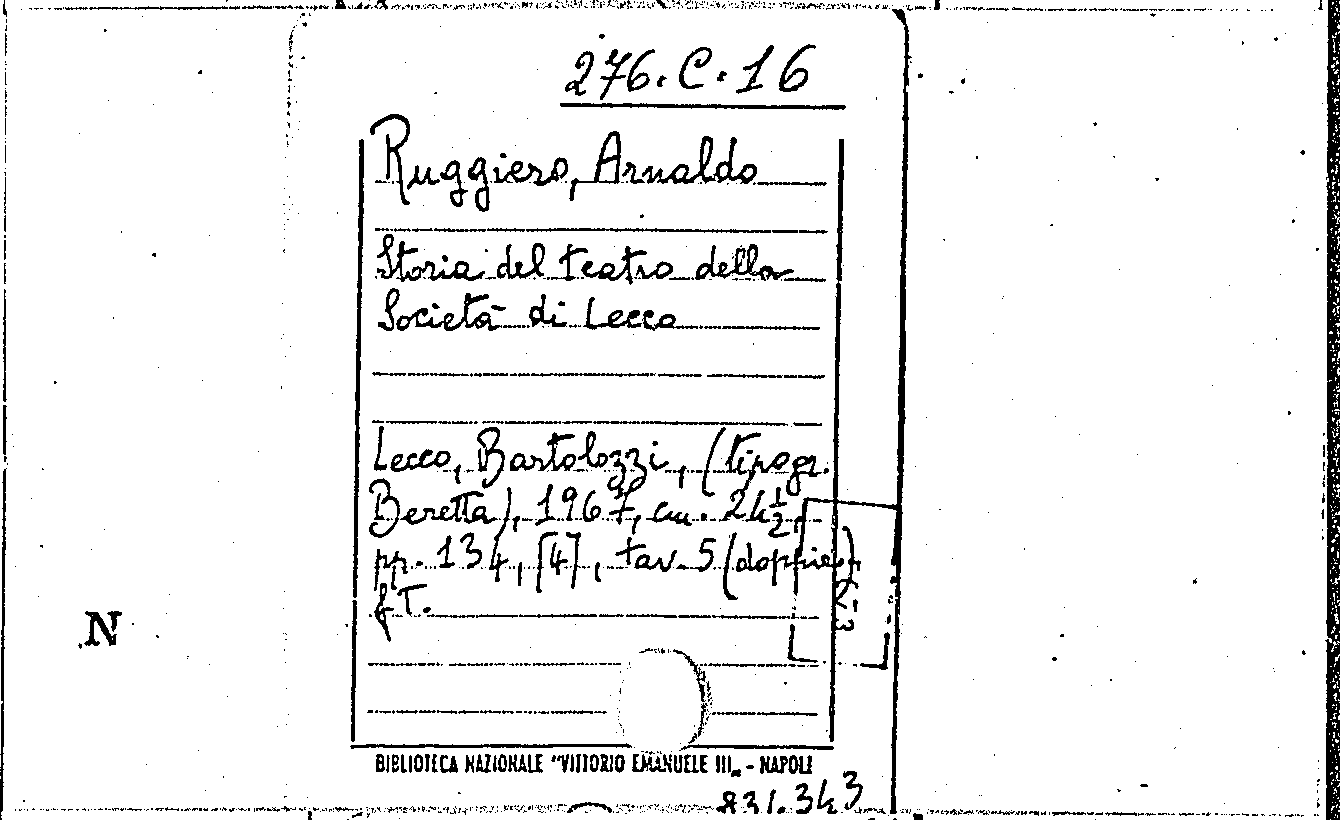 276.C.16
Ruggiero, Arnaldo
Storia del teatro della
Società di Lecco
Lecco, Bartolozzi, (tipogr.
Beretta), 1967, cm. 24½,
pp. 134, [4], tav. 5 (doppie)
f T.
N
BIBLIOTECA NAZIONALE "VITTORIO EMANUELE III„ - NAPOLI
831.343